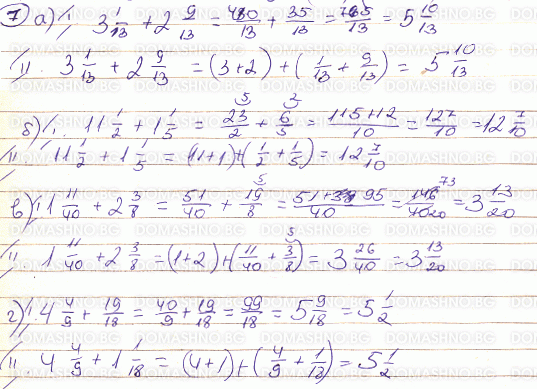 7 а) I. 3 1/13 + 2 9/13 = 40/13 + 35/13 = 75/13 = 5 10/13
II. 3 1/13 + 2 9/13 = (3+2) + (1/13 + 9/13) = 5 10/13
б) I. 11 1/2 + 1 1/5 = 23/2 + 6/5 = 115+12/10 = 127/10 = 12 7/10
II. 11 1/2 + 1 1/5 = (11+1)+(1/2 + 1/5) = 12 7/10
в) I. 1 11/40 + 2 3/8 = 51/40 + 19/8 = 51+95/40 = 146/40 = 3 13/20
II. 1 11/40 + 2 3/8 = (1+2)+(11/40 + 3/8) = 3 26/40 = 3 13/20
г) I. 4 4/9 + 19/18 = 40/9 + 19/18 = 99/18 = 5 9/18 = 5 1/2
II. 4 4/9 + 1 1/18 = (4+1)+(4/9 + 1/18) = 5 1/2